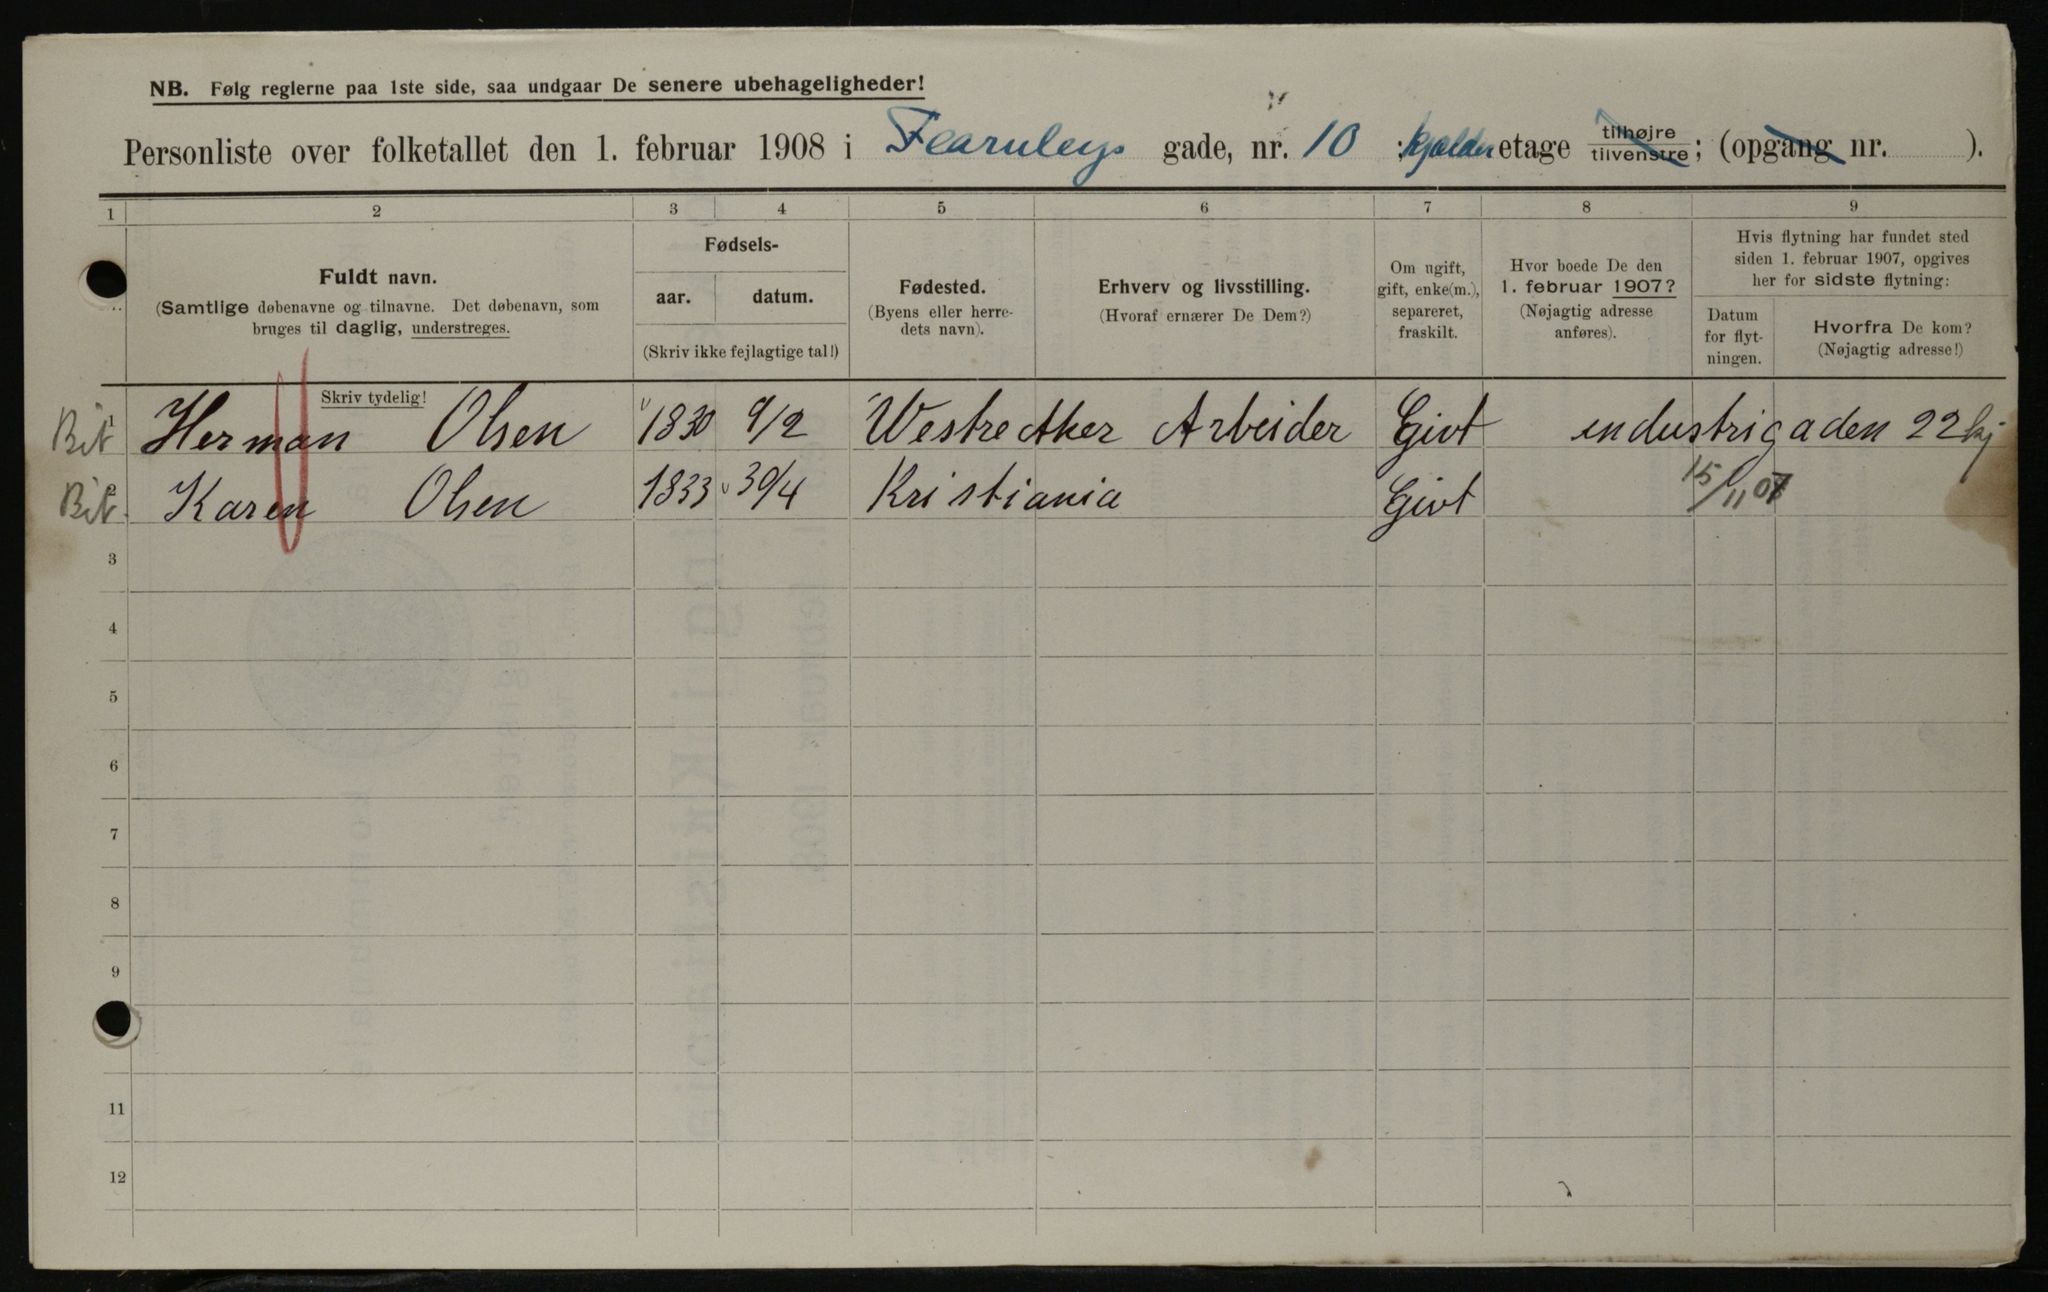 NB. Følg reglerne paa 1ste side, saa undgaar De senere ubehageligheder!
Personliste over folketallet den 1. februar 1908 i Fearnleys gade, nr. 10 : kjælder etage tilhøjre tilvenstre; (opgang nr. ).
1 2 3 4 5 6 7 8 9
Fuldt navn.
(Samtlige døbenavne og tilnavne. Det døbenavn, som
bruges til daglig, understreges.
Skriv tydelig!
Fødsels-
aar. datum.
(Skriv ikke fejlagtige tal!)
Fødested.
(Byens eller herre-
dets navn).
Erhverv og livsstilling.
(Hvoraf ernærer De Dem?)
Om ugift,
gift, enke(m.),
separeret,
fraskilt.
Hvor boede De den
1. februar 1907?
(Nøjagtig adresse
anføres).
Hvis flytning har fundet sted
siden 1. februar 1907, opgives
her for sidste flytning:
Datum
for flyt-
ningen.
Hvorfra De kom?
(Nøjagtig adresse!)
Bit 1 Herman Olsen 1830 9/2 Westre Aker Arbeider Givt industrigaden 22 kj
Bit. 2 Karen Olsen 1833 30/4 Kristiania Givt 15/11 07
3
4
5
6
7
8
9
11
12